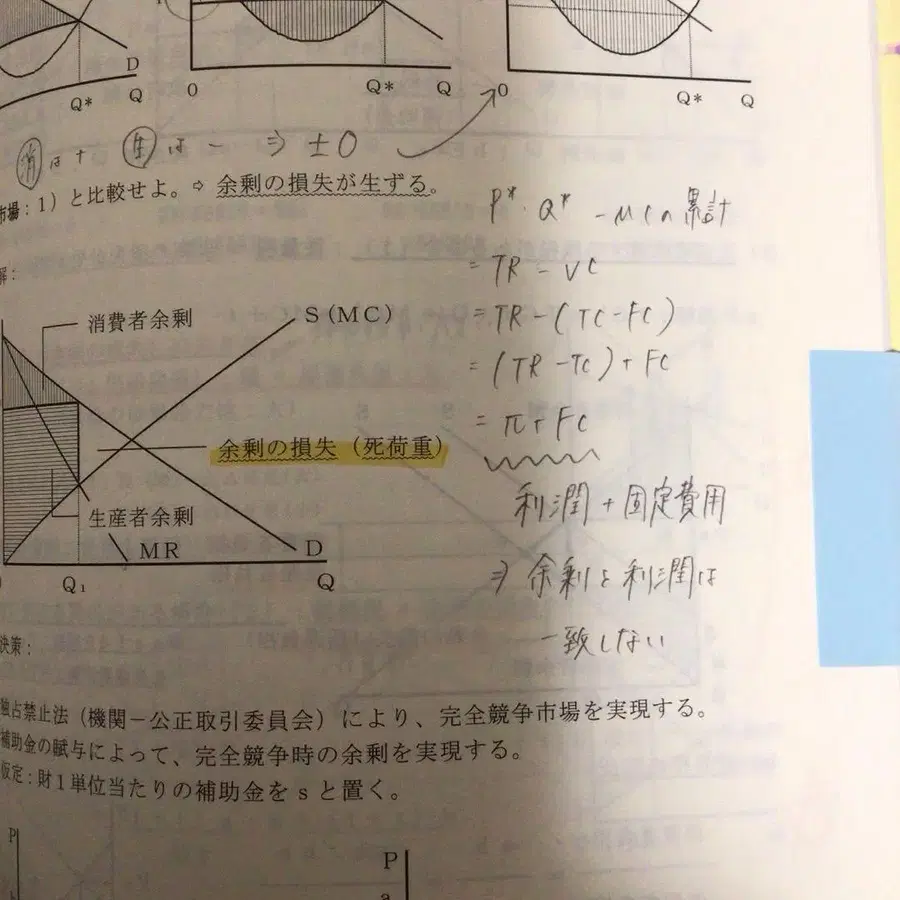 D
Q* Q
0 Q* Q
0 Q* Q
消は+ 生は- ⇒ ±0
市場:1)と比較せよ。⇨ 余剰の損失が生ずる。
P*・Q* -MCの累計
= TR - VC
= TR-(TC-FC)
= (TR-TC)+FC
= π+FC
利潤+固定費用
⇒ 余剰と利潤は
一致しない
解:
消費者余剰
S(MC)
余剰の損失(死荷重)
生産者余剰
MR
D
Q₁
Q
決策:
独占禁止法(機関-公正取引委員会)により、完全競争市場を実現する。
補助金の賦与によって、完全競争時の余剰を実現する。
仮定:財1単位当たりの補助金をsと置く。
P
P
a